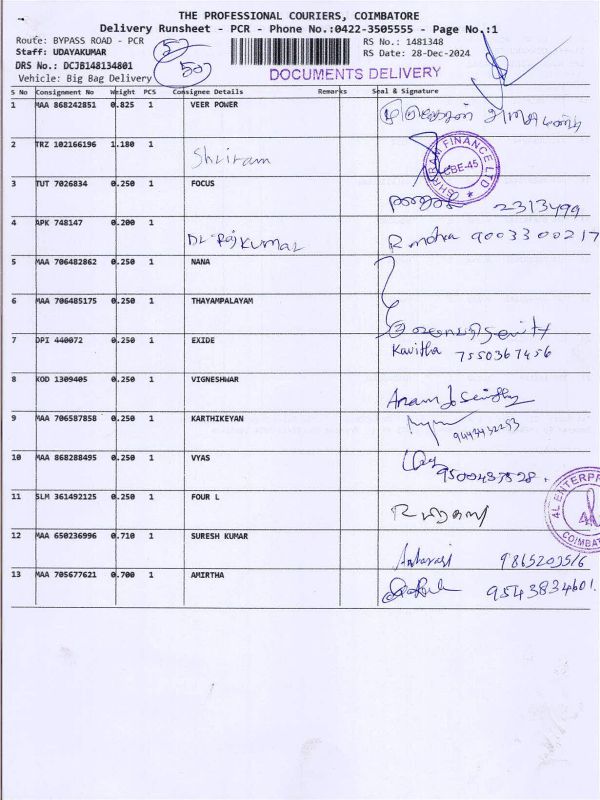 THE PROFESSIONAL COURIERS, COIMBATORE
Delivery Runsheet - PCR - Phone No.:0422-3505555 - Page No.:1
Route: BYPASS ROAD - PCR RS No.: 1481348
Staff: UDAYAKUMAR RS Date: 28-Dec-2024
DRS No.: DCJB148134801
Vehicle: Big Bag Delivery DOCUMENTS DELIVERY
S No Consignment No Weight PCS Consignee Details Remarks Seal & Signature
1 MAA 868242851 0.825 1 VEER POWER
2 TRZ 102166196 1.180 1 Shriram SHRIRAM FINANCE LTD CBE-45
3 TUT 7026834 0.250 1 FOCUS 2313499
4 APK 748147 0.200 1 Dr Rajkumar R mohra 9003300217
5 MAA 706482862 0.250 1 NANA
6 MAA 706485175 0.250 1 THAYAMPALAYAM
7 DPI 440072 0.250 1 EXIDE Kavitha 7550367456
8 KOD 1309405 0.250 1 VIGNESHWAR
9 MAA 706587858 0.250 1 KARTHIKEYAN
10 MAA 868288495 0.250 1 VYAS 9500437528
11 SLM 361492125 0.250 1 FOUR L 4L ENTERPR
12 MAA 650236996 0.710 1 SURESH KUMAR
13 MAA 705677621 0.700 1 AMIRTHA 9543834601.